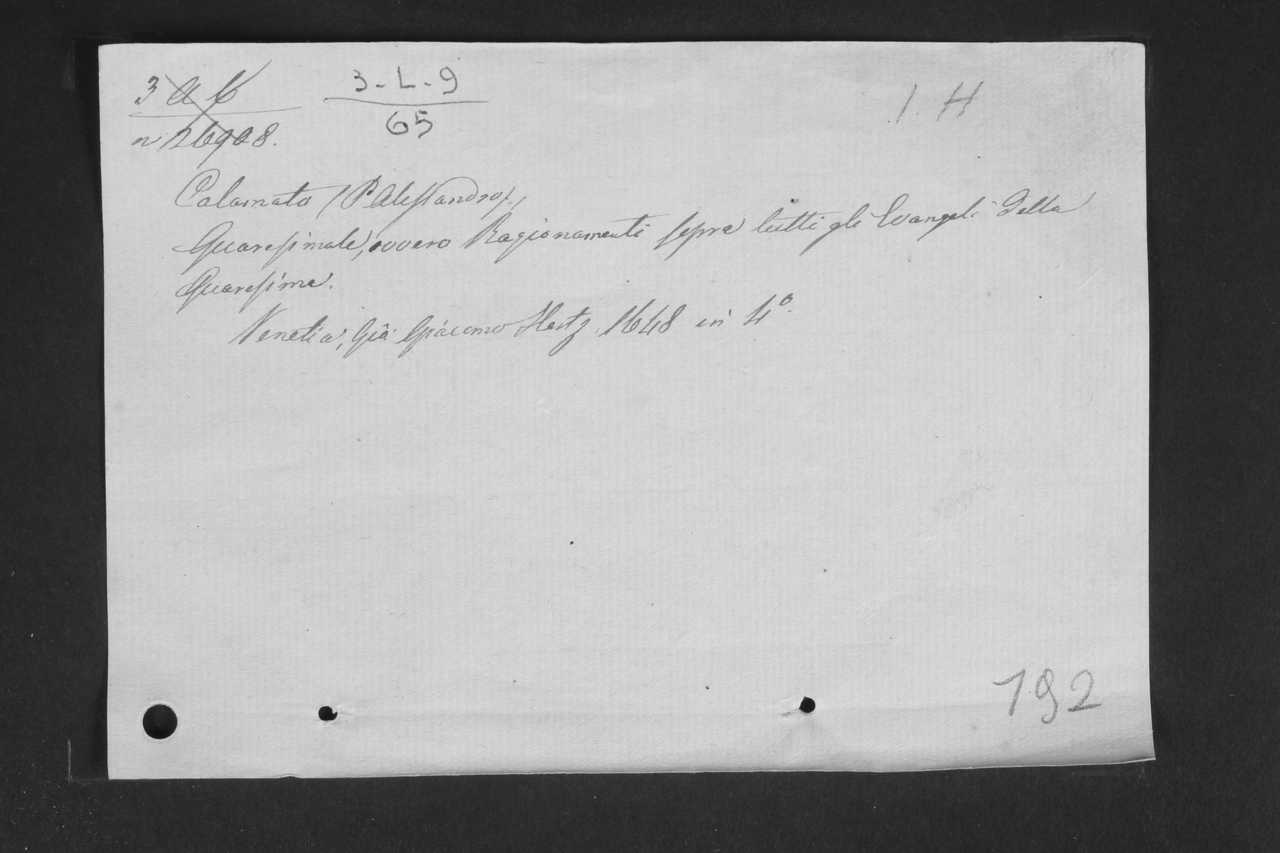 3 a b
3-L-9
1. H
n 26908.
65
Calamato (P. Alessandro).,
Quaresimale, ovvero Ragionamenti sopra tutti gli Evangeli della
Quaresima.
Venetia, Gio: Giacomo Hertz 1648 in 4°.
192